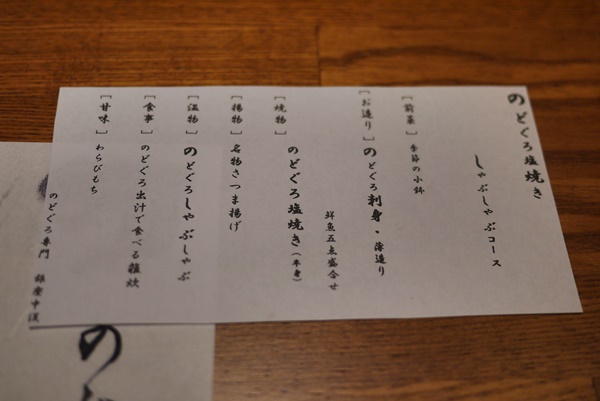 のどぐろ塩焼き
しゃぶしゃぶコース
［前菜］ 季節の小鉢
［お造り］ のどぐろ刺身・薄造り
鮮魚五点盛合せ
［焼物］ のどぐろ塩焼き（半身）
［揚物］ 名物さつま揚げ
［温物］ のどぐろしゃぶしゃぶ
［食事］ のどぐろ出汁で食べる雑炊
［甘味］ わらびもち
のどぐろ専門 銀座中俣
のど